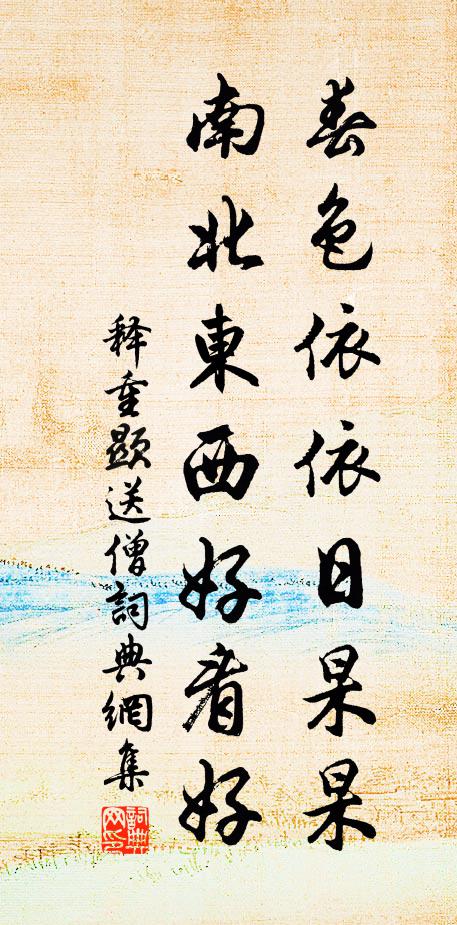 春色依依日杲杲
南北東西好看好
释重顯送僧詞典網集
詞典網印